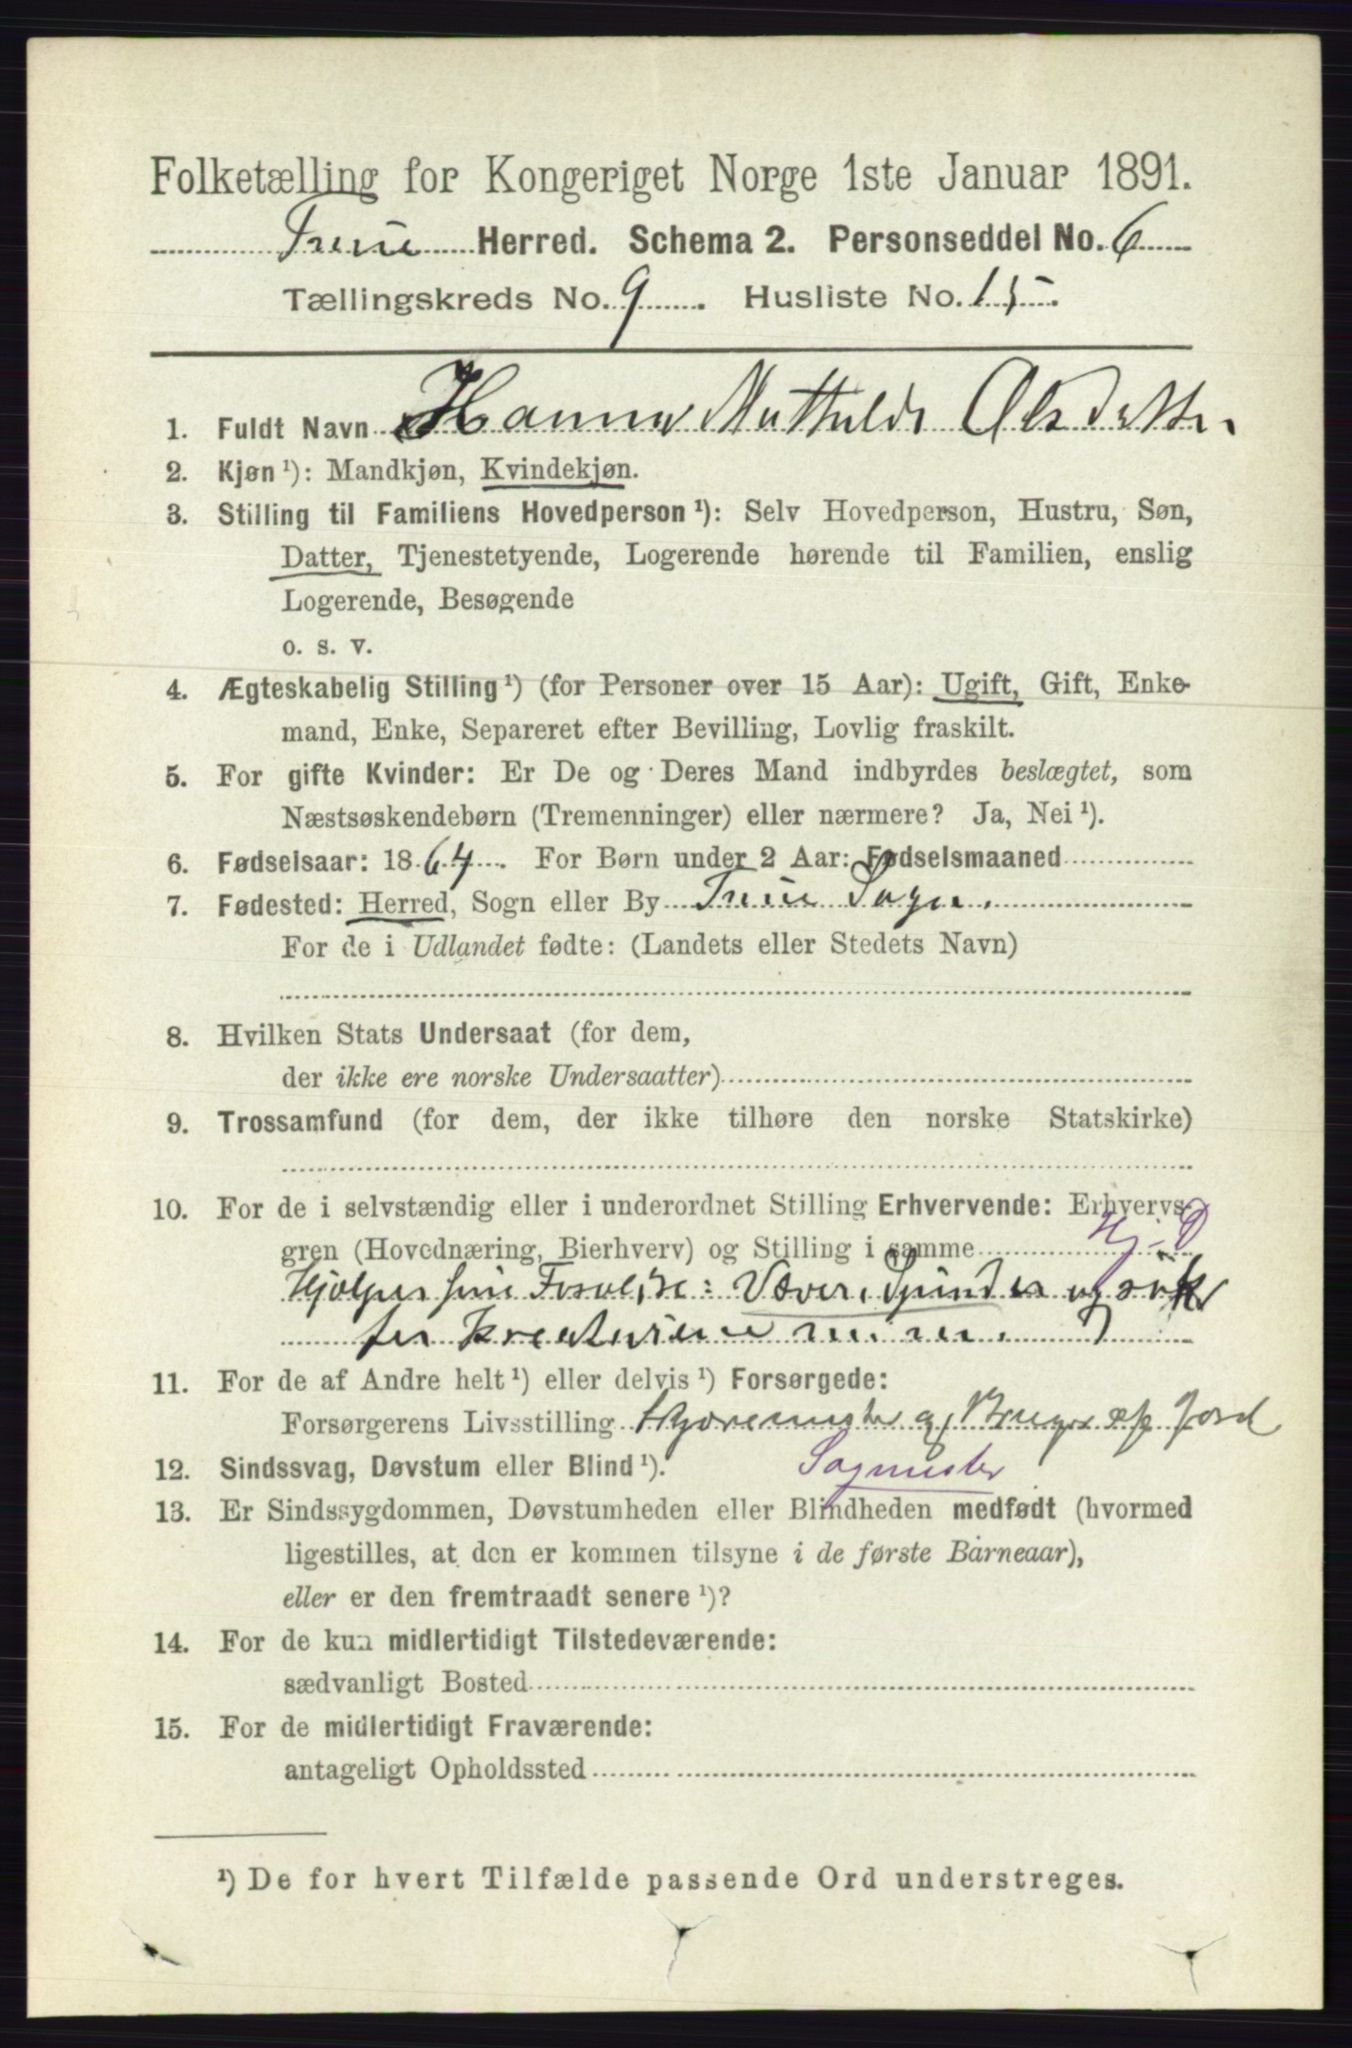 Folketælling for Kongeriget Norge 1ste Januar 1891.
Tune Herred. Schema 2. Personseddel No. 6
Tællingskreds No. 9. Husliste No. 15.
1. Fuldt Navn Hanna Mathilde Olsdatter.
2. Kjøn ¹): Mandkjøn, Kvindekjøn.
3. Stilling til Familiens Hovedperson ¹): Selv Hovedperson, Hustru, Søn,
Datter, Tjenestetyende, Logerende hørende til Familien, enslig
Logerende, Besøgende
o. s. v.
4. Ægteskabelig Stilling ¹) (for Personer over 15 Aar): Ugift, Gift, Enke-
mand, Enke, Separeret efter Bevilling, Lovlig fraskilt.
5. For gifte Kvinder: Er De og Deres Mand indbyrdes beslægtet, som
Næstsøskendebørn (Tremenninger) eller nærmere? Ja, Nei ¹).
6. Fødselsaar: 1864. For Børn under 2 Aar: Fødselsmaaned
7. Fødested: Herred, Sogn eller By Tune Sogn.
For de i Udlandet fødte: (Landets eller Stedets Navn)
8. Hvilken Stats Undersaat (for dem,
der ikke ere norske Undersaatter)
9. Trossamfund (for dem, der ikke tilhøre den norske Statskirke)
10. For de i selvstændig eller i underordnet Stilling Erhvervende: Erhvervs-
gren (Hovednæring, Bierhverv) og Stilling i samme Hj. D
Hjælper sine Forældre: Væver, Spinder og
for Kreaturene m. m.
11. For de af Andre helt ¹) eller delvis ¹) Forsørgede:
Forsørgerens Livsstilling og Bruger af Jord
12. Sindssvag, Døvstum eller Blind ¹). Sagmester
13. Er Sindssygdommen, Døvstumheden eller Blindheden medfødt (hvormed
ligestilles, at den er kommen tilsyne i de første Barneaar),
eller er den fremtraadt senere ¹)?
14. For de kun midlertidigt Tilstedeværende:
sædvanligt Bosted
15. For de midlertidigt Fraværende:
antageligt Opholdssted
¹) De for hvert Tilfælde passende Ord understreges.